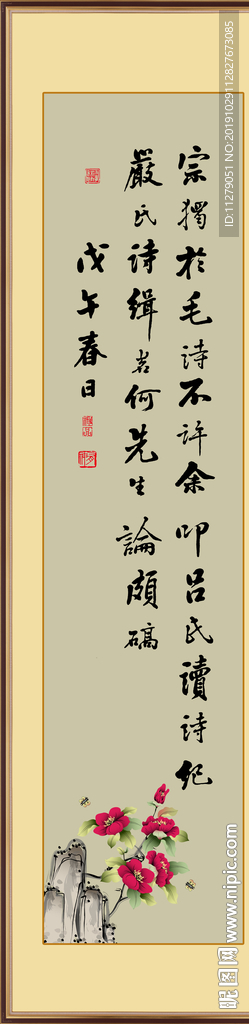 宗獨於毛詩不許余叩呂氏讀詩紀
嚴氏詩緝若何先生論頗碻
戊午春日
ID:11279051 NO:20191029112827673085
昵图网 www.nipic.com